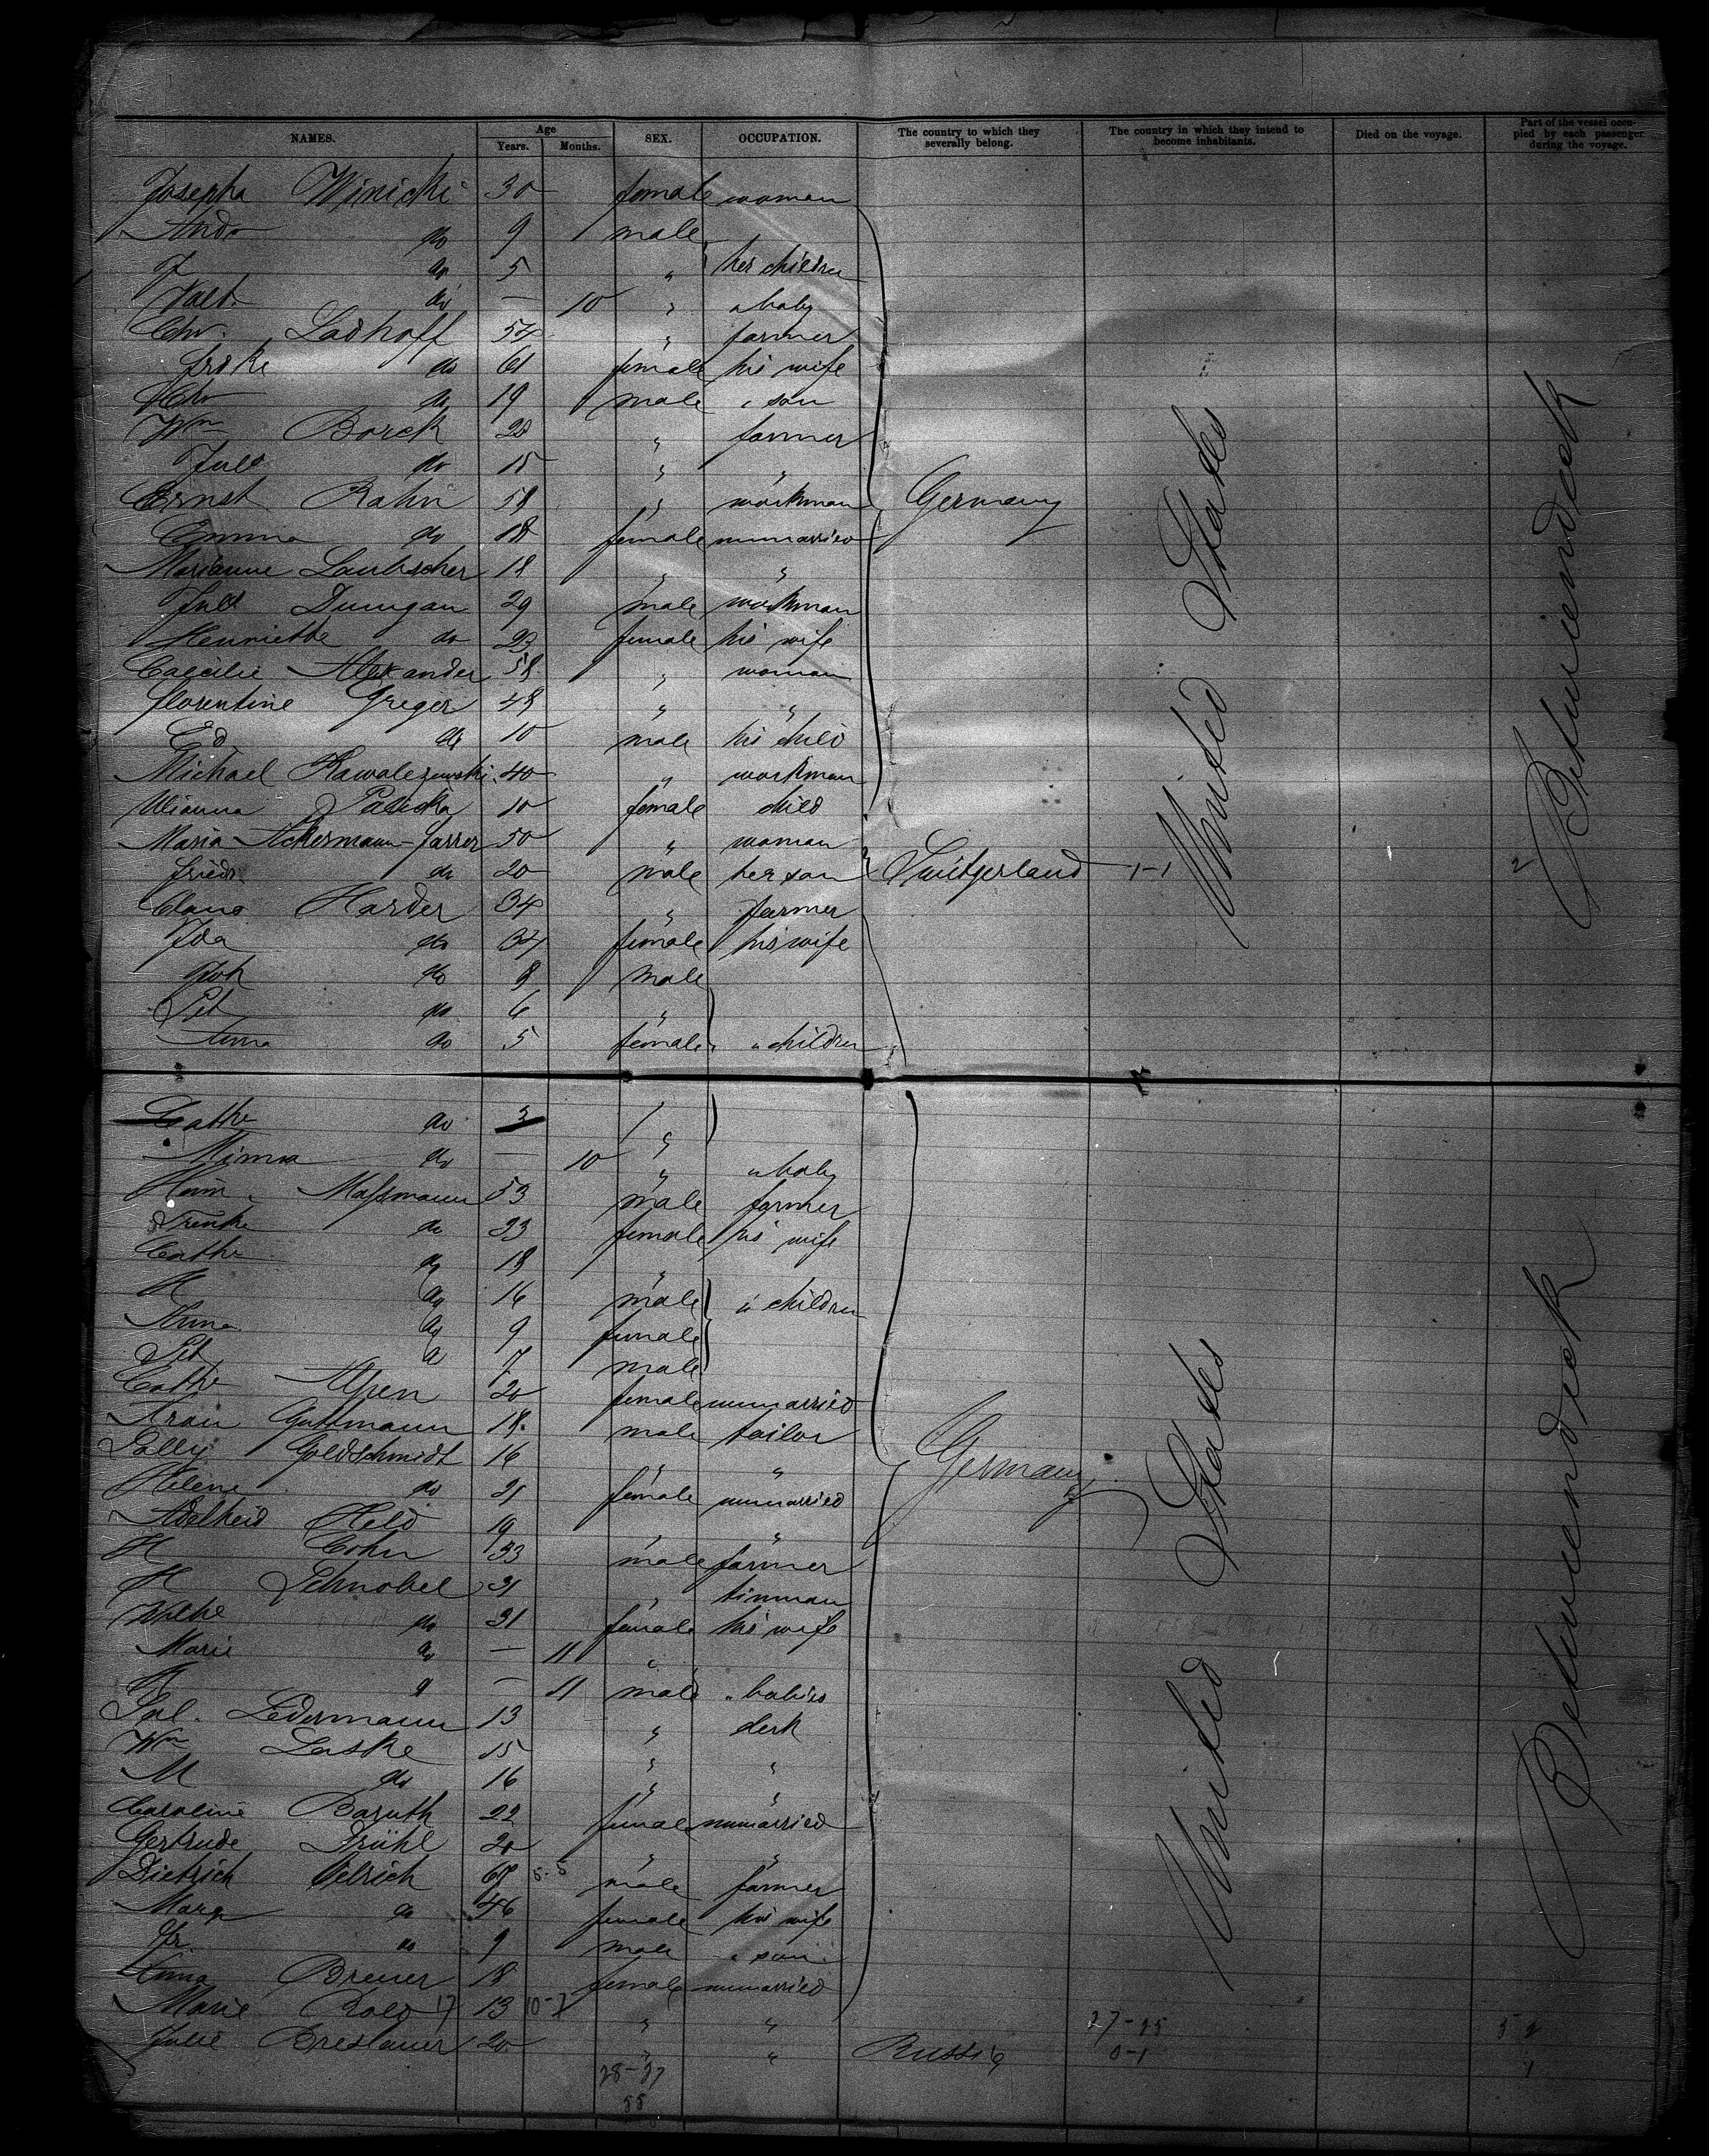 NAMES. Age Years. Months. SEX. OCCUPATION. The country to which they severally belong. The country in which they intend to become inhabitants. Died on the voyage. Part of the vessel occupied by each passenger during the voyage.
Josepha Winicki 30 female woman
Andr do 9 male
J do 5 " her children
Valt. do — 10 " " baby
Chr. Ladhoff 54 " farmer
do 61 female his wife
Chr do 19 male " son
Wm Borck 28 " farmer
Jul do 15 " "
Ernst Rahn 58 " workman Germany
Emma do 18 female unmarried
Marianne Laubscher 18 " "
Jul Dumgan 29 male workman
Henriette do 23 female his wife
Caecilie Alexander 58 " woman
Florentine Greger 48 " "
Ed do 10 male his child
Michael Kawalezewski 40 " workman
10 female child
Maria Ackermann-Farrer 50 " woman
Friedr. do 20 male her son Switzerland 1-1 United States 2 Betweendeck
Claus Harder 34 " farmer
Ida do 34 female his wife
Joh do 8 male
Pet do 6 "
Anna do 5 female " children
Cathe do 3 "
Minna do — 10 " " baby
Heinr. Maßmann 53 male farmer
Trinke do 33 female his wife
Cathe do 18 "
H do 16 male " children
Anna do 9 female
Pet do 7 male
Cathe Alpen 20 female unmarried
Guttmann 18. male tailor
Sally Goldschmidt 16 " "
Helene do 21 female unmarried Germany
Adelheid Held 19 " "
H Cohn 33 male farmer
H Schnobel 31 " tinman
do 31 female his wife
Marie do — 11 "
do — 11 male " babies
Sal. Ledermann 13 " clerk
Wm Laske 15 " "
M do 16 " "
Caroline Baruth 22 female unmarried
Gertrude Brühl 20 " "
Dietrich Oelrich 67 5-5 male farmer
Marg do 46 female his wife
Fr do 9 male " son
Anna Breuer 18 female unmarried
United States
Betweendeck
Marie 17 13 10-7 " " 27-25 52
Julie Breslauer 20 " " Russia 0-1 1
28-27
55